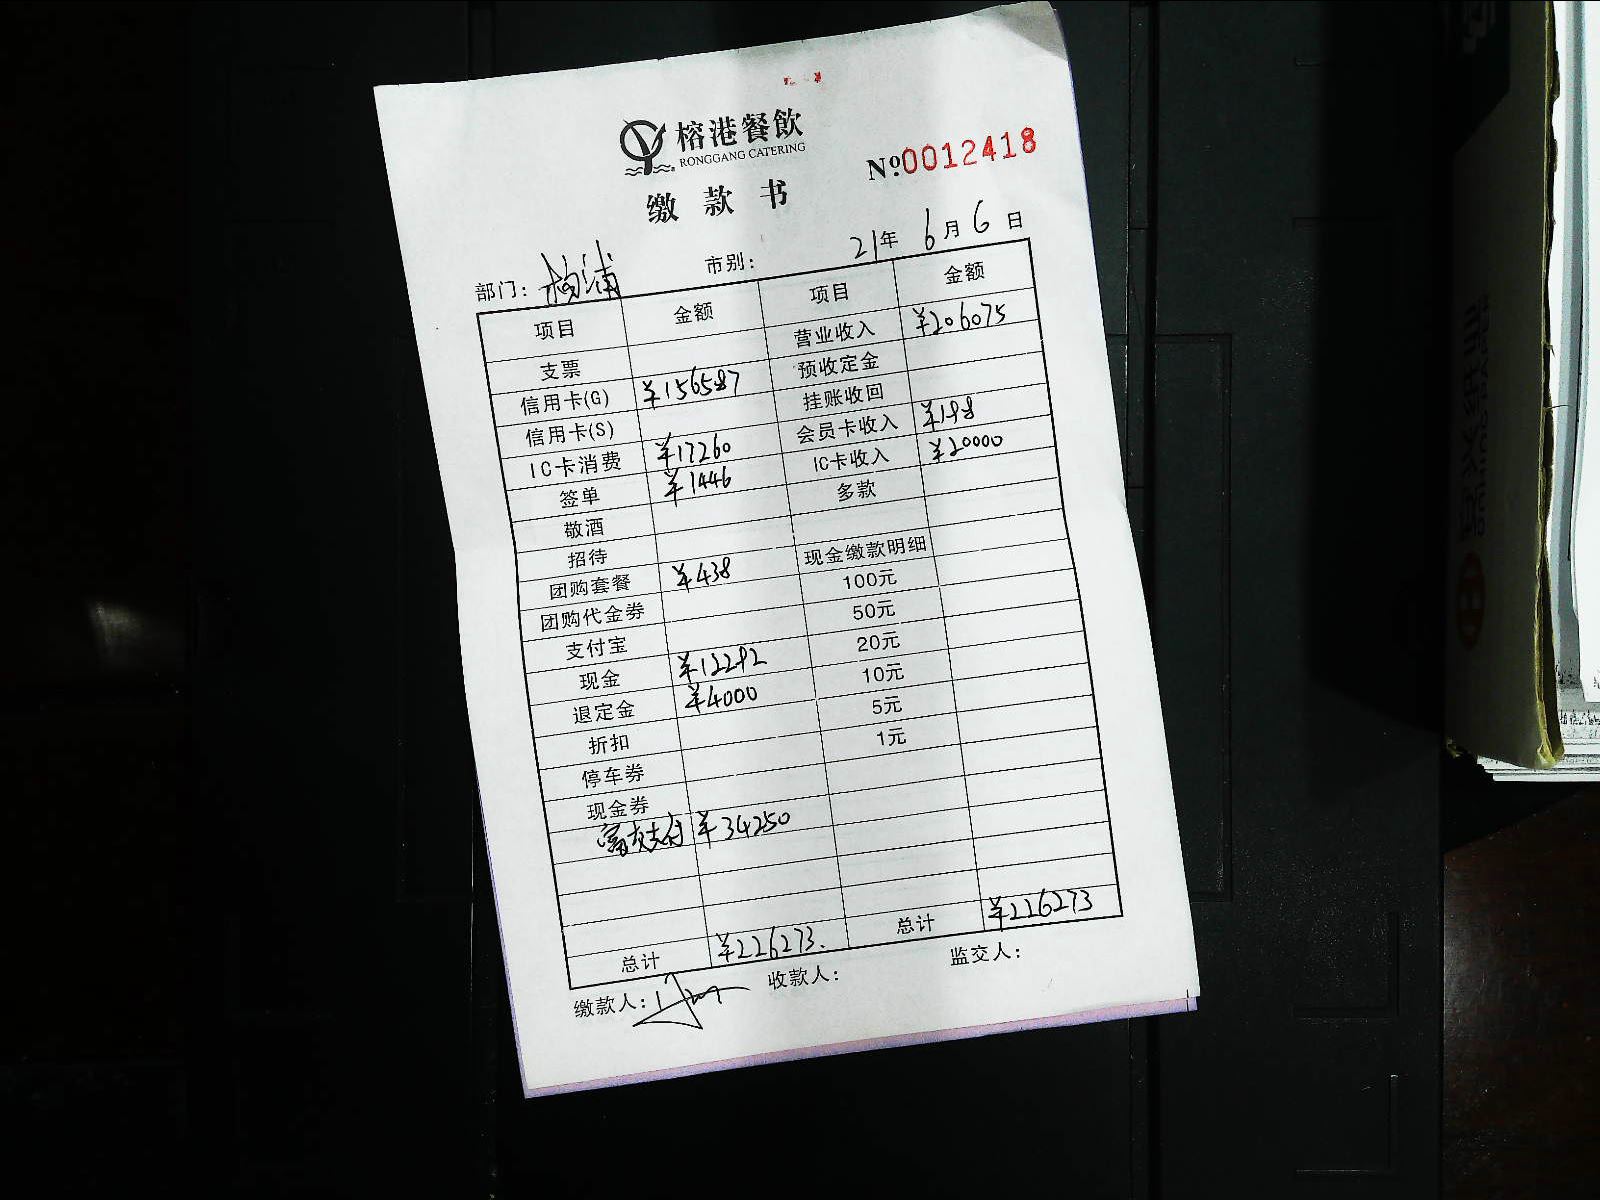 榕港餐飲
RONGGANG CATERING
缴款书
Nº0012418
部门：杨浦 市别： 21年 6月 6日
项目 金额 项目 金额
支票 营业收入 ¥206075
信用卡(G) ¥156587 预收定金
信用卡(S) 挂账收回
IC卡消费 ¥17260 会员卡收入 ¥198
签单 ¥1446 IC卡收入 ¥20000
敬酒 多款
招待
团购套餐 ¥438 现金缴款明细
团购代金券 100元
支付宝 50元
现金 ¥12292 20元
退定金 ¥4000 10元
折扣 5元
停车券 1元
现金券
富友支付 ¥34250
总计 ¥226273. 总计 ¥226273
缴款人： 收款人： 监交人：